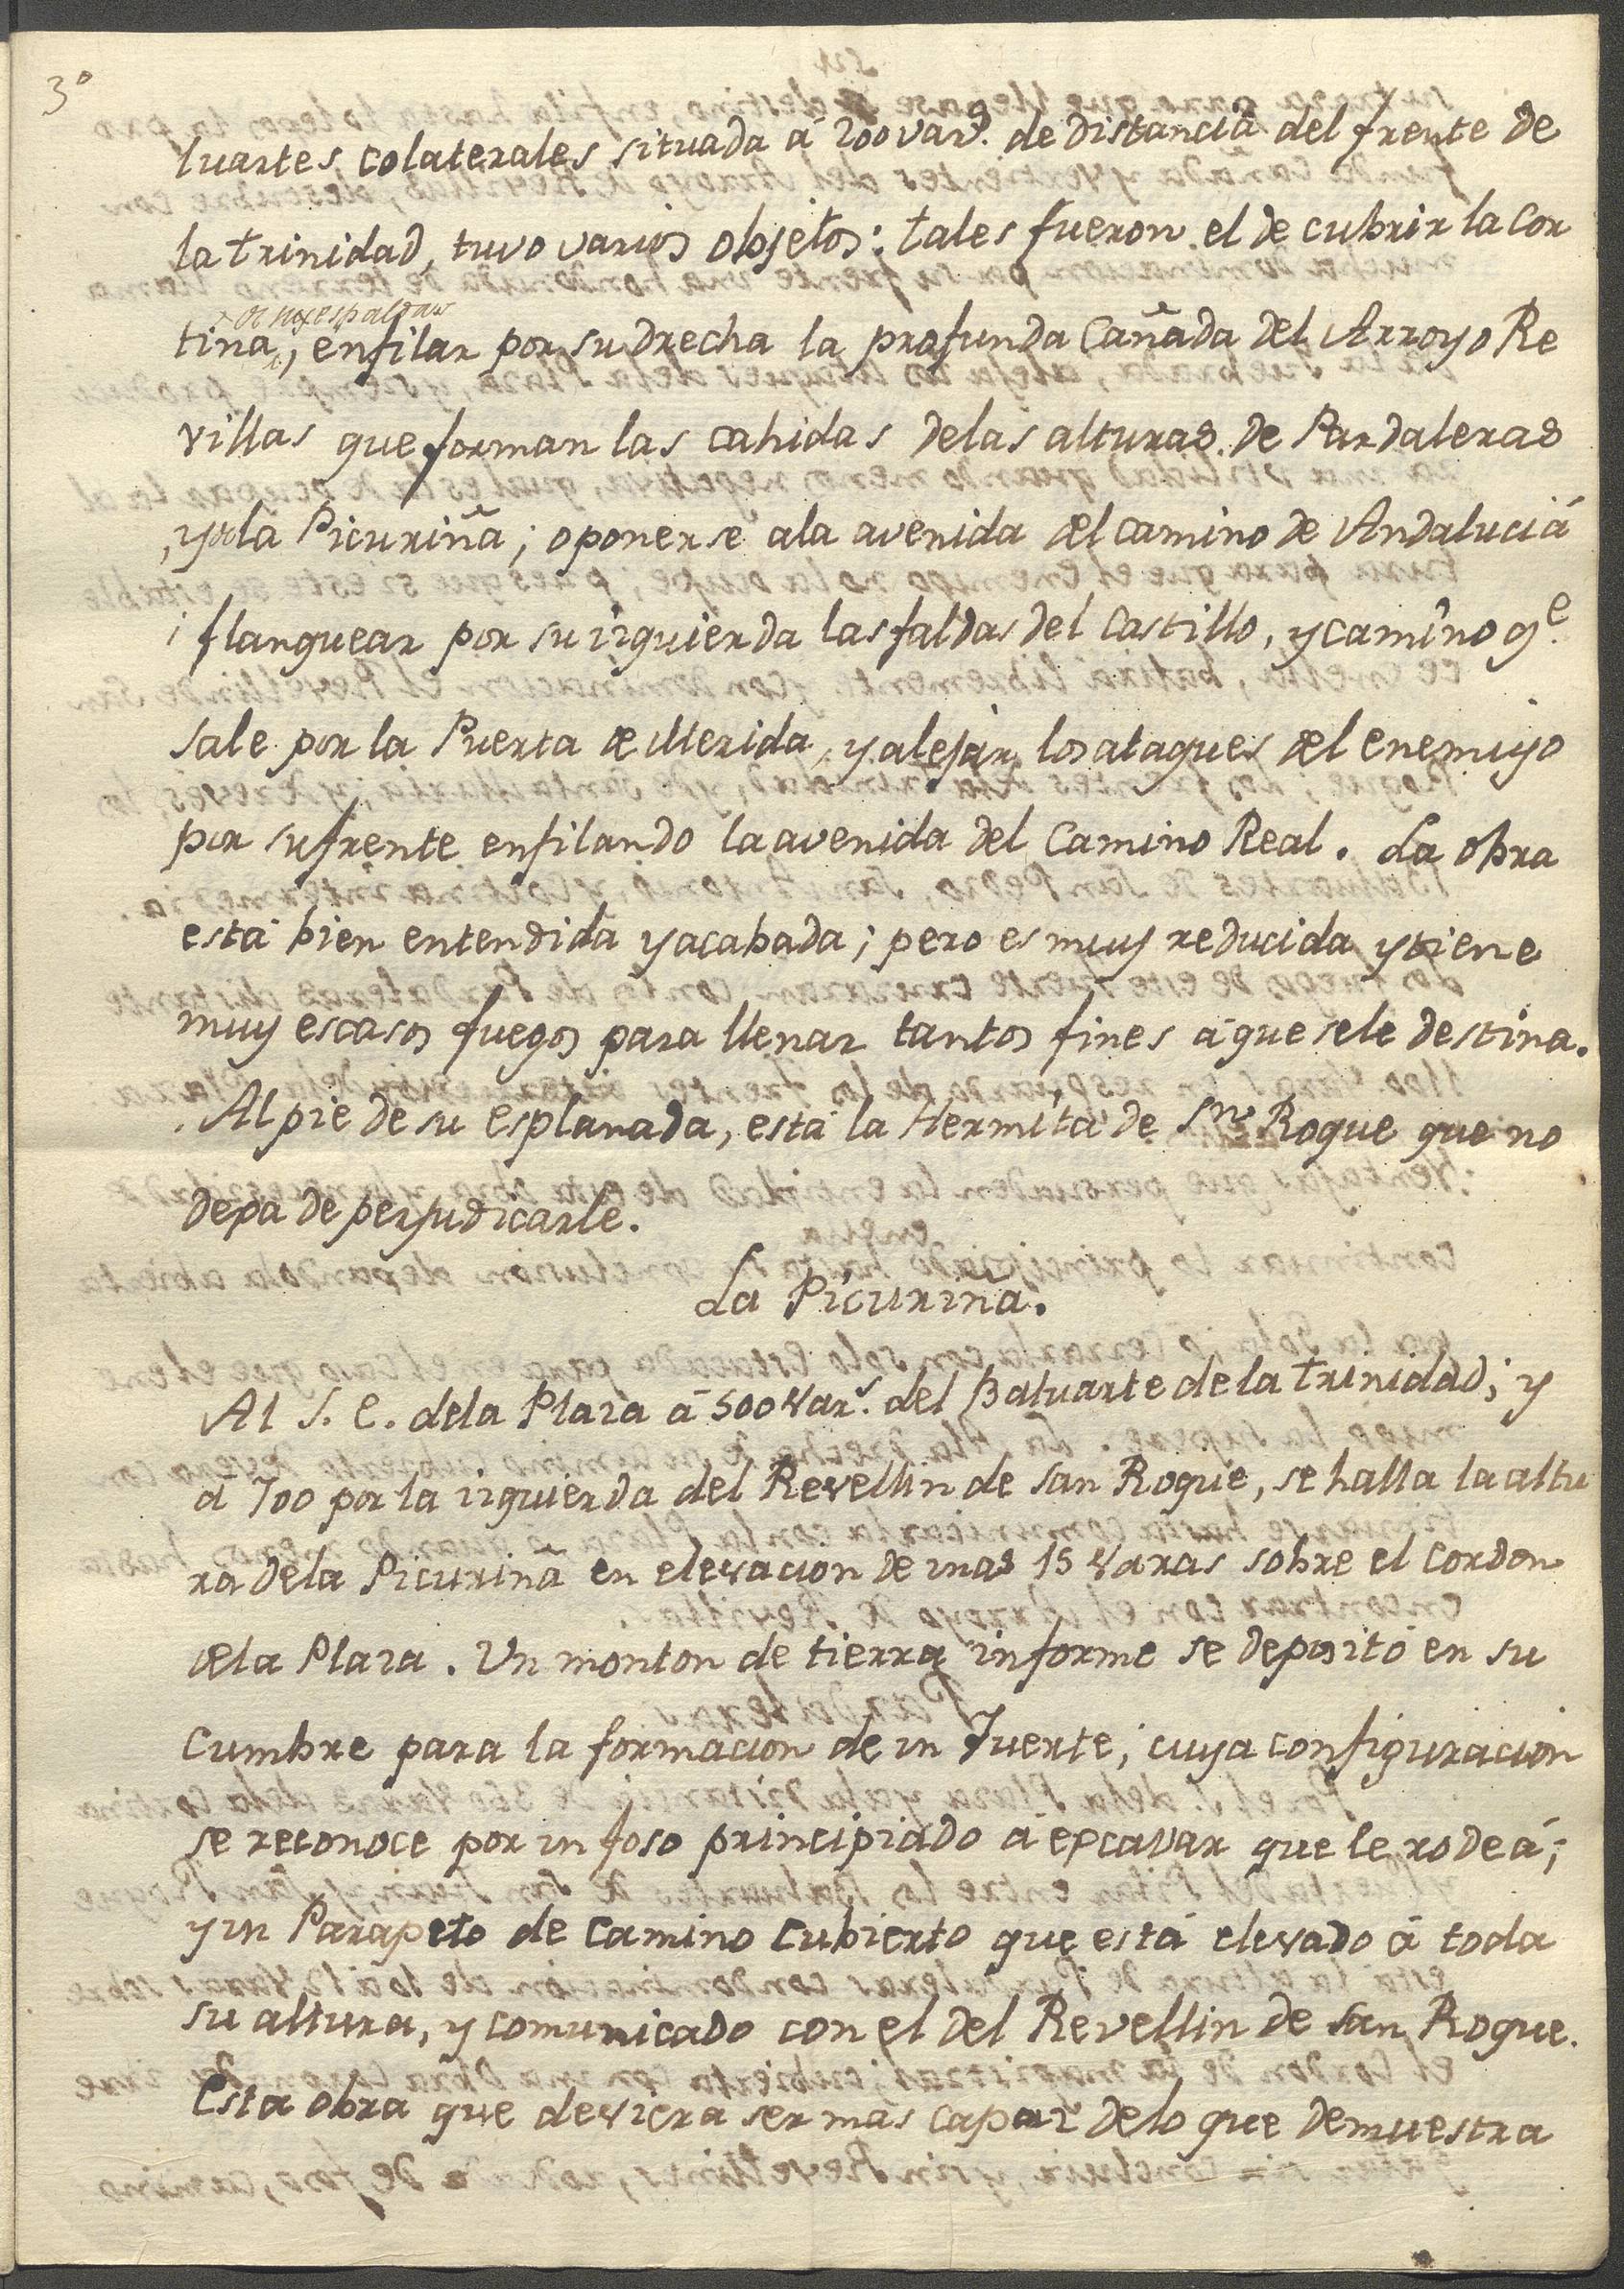 3º
luartes colaterales situada á 200 vars. de distancia del frente de
la trinidad, tuvo varios objetos: tales fueron el de cubrir la cor
de sus espaldas
tina, enfilar por su drecha la profunda Cañada del Arroyo Re
villas que forman las cahidas delas alturas de Pardaleras
, y la Picuriña; oponerse ala avenida del camino de Andaluciá
; flanquear por su izquierda las faldas del Castillo, y camino qe.
sale por la Puerta de Merida, y alejar los ataques del enemigo
por su frente enfilando la avenida del Camino Real. La obra
está bien entendida y acabada; pero es muy reducida y tiene
muy escasos fuegos para llenar tantos fines á que sele destina.
Al pie de su esplanada, está la Hermita de Sn. Roque que no
depa de perjudicarle.
La Picuriña.
Al S. E. dela Plaza á 500 Vars. del Baluarte de la trinidad; y
á 700 por la izquierda del Revellin de San Roque, se halla la altu
ra dela Picuriña en elevacion de mas 15 Varas sobre el cordon
dela Plaza. Un monton de tierra informe se depositó en su
cumbre para la formacion de un Fuerte; cuya configuracion
se reconoce por un foso principiado á epcavar que le rodeá;
y un Parapeto de Camino Cubierto que está elevado á toda
su altura, y comunicado con el del Revellin de San Roque.
Esta obra que deviera ser mas capaz delo que demuestra